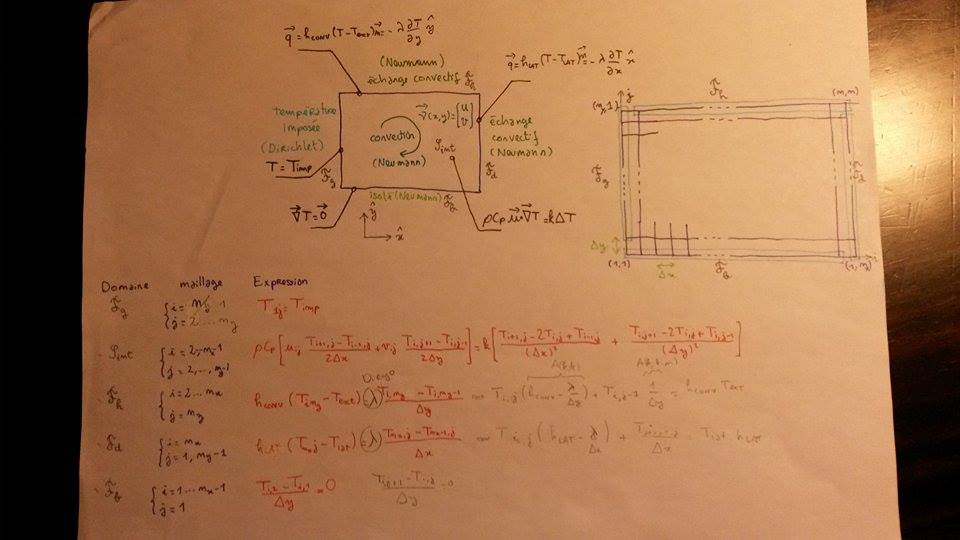 q⃗ = h_CONV (T - T_EXT) n⃗ = - λ ∂T/∂y ŷ
(Neumann)
échange convectif F_h
q⃗ = h_LAT (T - T_LAT) n⃗ = - λ ∂T/∂x x̂
température
imposée
(Dirichlet)
T = T_imp
F_g
v⃗(x,y) = [u v]
convection
(Neumann)
S_int
échange
convectif
(Neumann)
F_d
isolé (Neumann) F_b
∇⃗T = 0⃗
ρCp u⃗·∇⃗T = kΔT
ŷ
x̂
j
F_h
(m,m)
F_g
F_d
Δy
(1,1)
Δx
F_b
Domaine maillage Expression
F_g { j = 2 ... m_y T_1j = T_imp
S_int { i = 2, m_x-1 j = 2, ..., m_y-1 ρCp [ u_ij (T_i+1,j - T_i-1,j)/(2Δx) + v_ij (T_i,j+1 - T_i,j-1)/(2Δy) ] = k [ (T_i+1,j - 2T_i,j + T_i-1,j)/(Δx)² + (T_i,j+1 - 2T_i,j + T_i,j-1)/(Δy)² ]
F_h { i = 2 ... m_x j = m_y h_CONV (T_i,my - T_ext) = λ (T_i,my - T_i,my-1)/Δy T_i,j (h_CONV - λ/Δy) + T_i,j-1 = h_CONV T_EXT
F_d { i = m_x j = 1, m_y-1 h_LAT = λ (T_mx,j - T_mx-1,j)/Δx T_i,j (h_LAT - λ/Δx) +
F_b { i = 1 ... m_x-1 j = 1 (T_i,2 - T_i,1)/Δy = 0 (T_i,j+1 - T_i,j)/Δy = 0